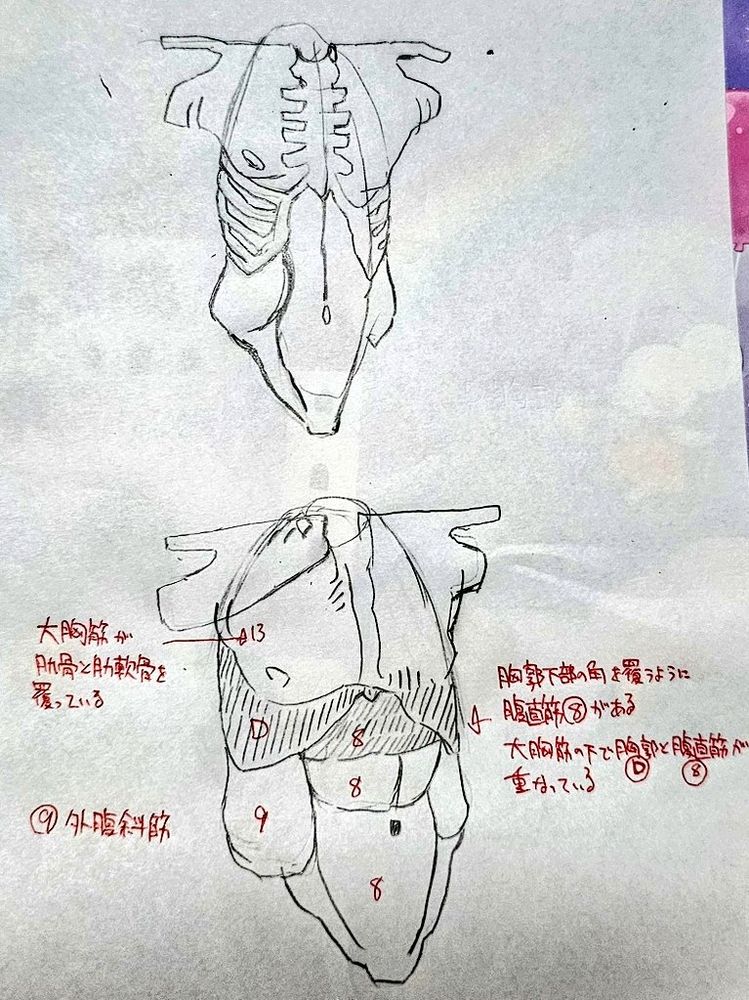 大胸筋が
肋骨と肋軟骨を
覆っている
13
胸郭下部の角を覆うように
腹直筋⑧がある
大胸筋の下で胸郭と腹直筋が
Ⓓ ⑧
重なっている
D
8
8
9
⑨ 外腹斜筋
8